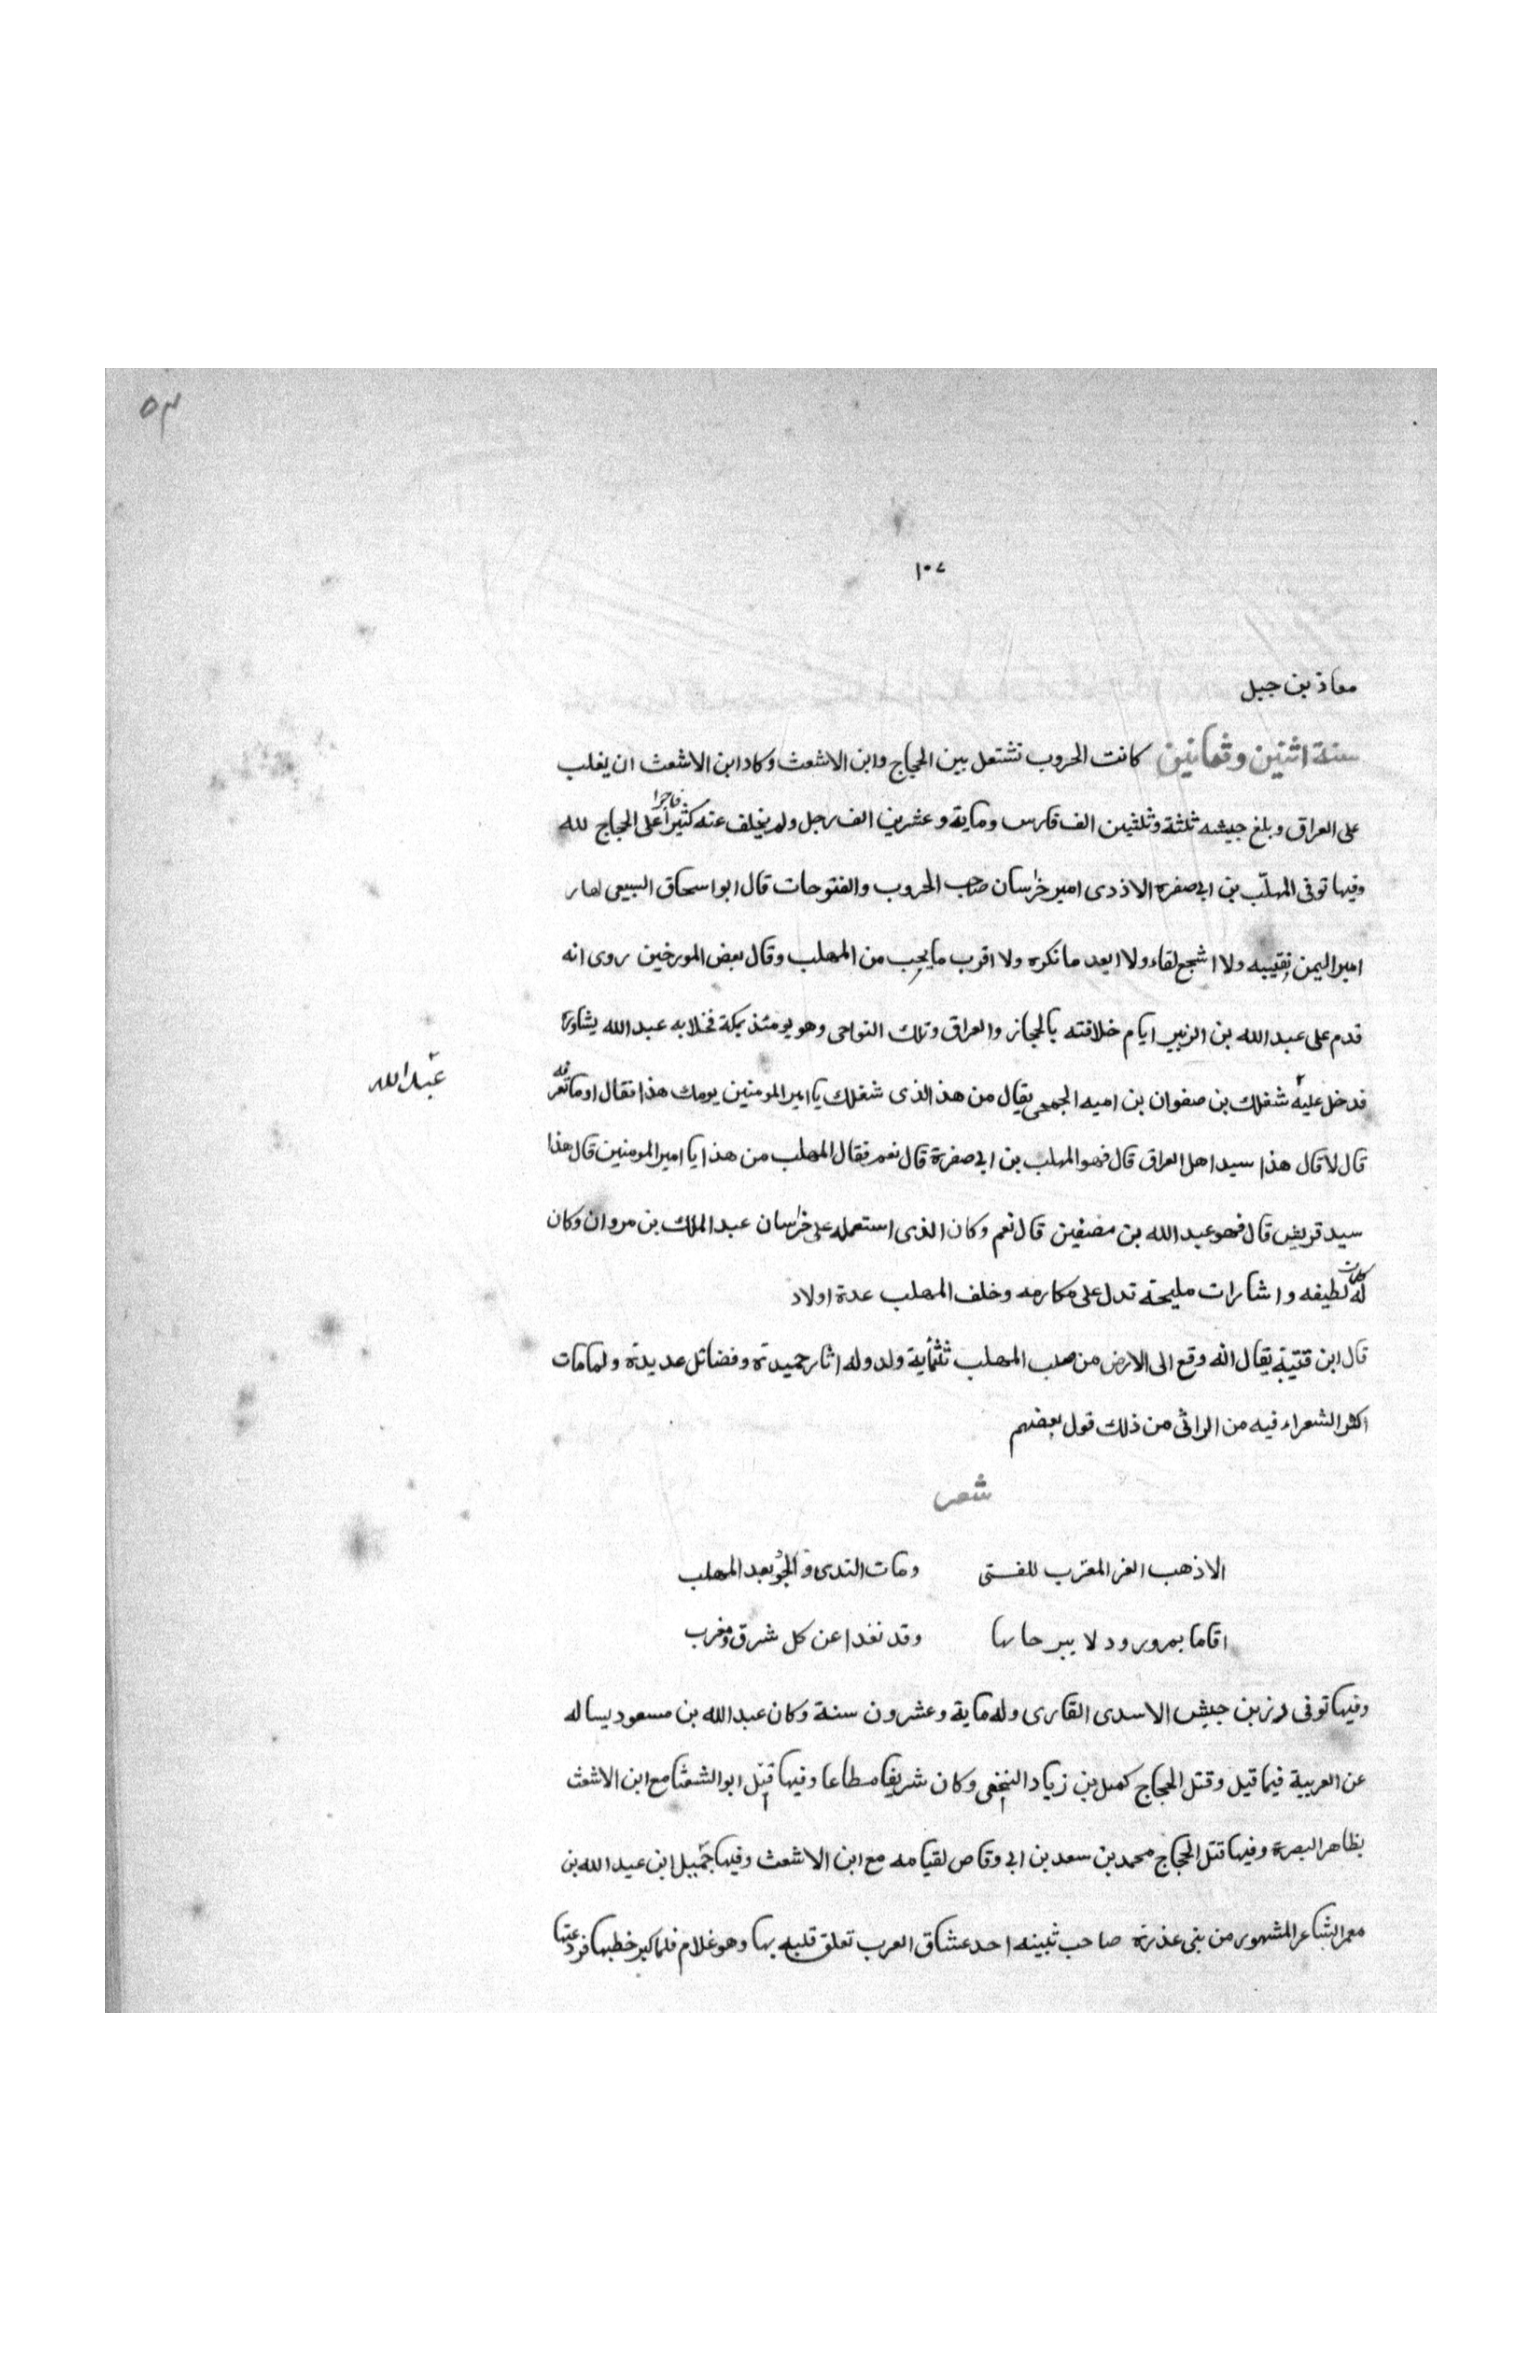 ٥٣
١٠٧
معاذ بن جبل
سنة اثنين وثمانين كانت الحروب تشتعل بين الحجاج وابن الاشعث وكاد ابن الاشعث ان يغلب
على العراق وبلغ جيشه ثلثة وثلثين الف فارس وماية وعشرين الف رجل ولم يخلف عنه كثيرا فاجرا على الحجاج لله
وفيها توفى المهلّب بن ابي صفره الازدى امير خراسان صاحب الحروب والفتوحات قال ابو اسحاق السبيعى لم ار
اميرا ليمن نقيبه ولا اشجع لقاء ولا ابعد ما نكره ولا اقرب ما يحب من المهلب وقال بعض المورخين روى انه
قدم على عبد الله بن الزبير ايام خلافته بالحجاز والعراق وتلك النواحى وهو يومئذ بمكة فخلا به عبد الله يشاوره
فدخل عليه شغلك بن صفوان بن اميه الجمحى يقال من هذ الذى شغلك يا امير المومنين يومك هذا فقال اوما تعرفه
عبد الله
قال لا قال هذا سيد اهل العراق قال فهو المهلب بن ابي صفرة قال نعم فقال المهلب من هذا يا امير المومنين قال هذا
سيد قريش قال فهو عبد الله بن مصفين قال نعم وكان الذى استعمله على خراسان عبد الملك بن مروان وكان
له كلمات لطيفه واشارات مليحة تدل على مكارمه وخلف المهلب عدة اولاد
قال ابن قتيبة يقال انه وقع الى الارض من صلب المهلب ثلثماية ولد وله اثار حميدة وفضائل عديدة ولما مات
اكثر الشعراء فيه من المراثى من ذلك قول بعضهم
شعر
الا ذهب الغز المقرب للفتى ومات الندى والجود بعد المهلب
اقاما بمرورود لا يبرحانها وقد نفدا عن كل شرق ومغرب
وفيها توفى زر بن حبيش الاسدى القارى وله ماية وعشرون سنة وكان عبد الله بن مسعود يساله
عن العربية فيما قيل وقتل الحجاج كميل بن زياد النخعى وكان شريفا مطاعا وفيها قتل ابو الشعثا مع ابن الاشعث
بظاهر البصرة وفيها قتل الحجاج محمد بن سعد بن ابي وقاص لقيامه مع ابن الاشعث وفيها جميل ابن عبد الله بن
معمر الشاعر المشهور من بنى عذرة صاحب ثبينه احد عشاق العرب تعلق قلبه بها وهو غلام فلما كبر خطبها فرد عنها